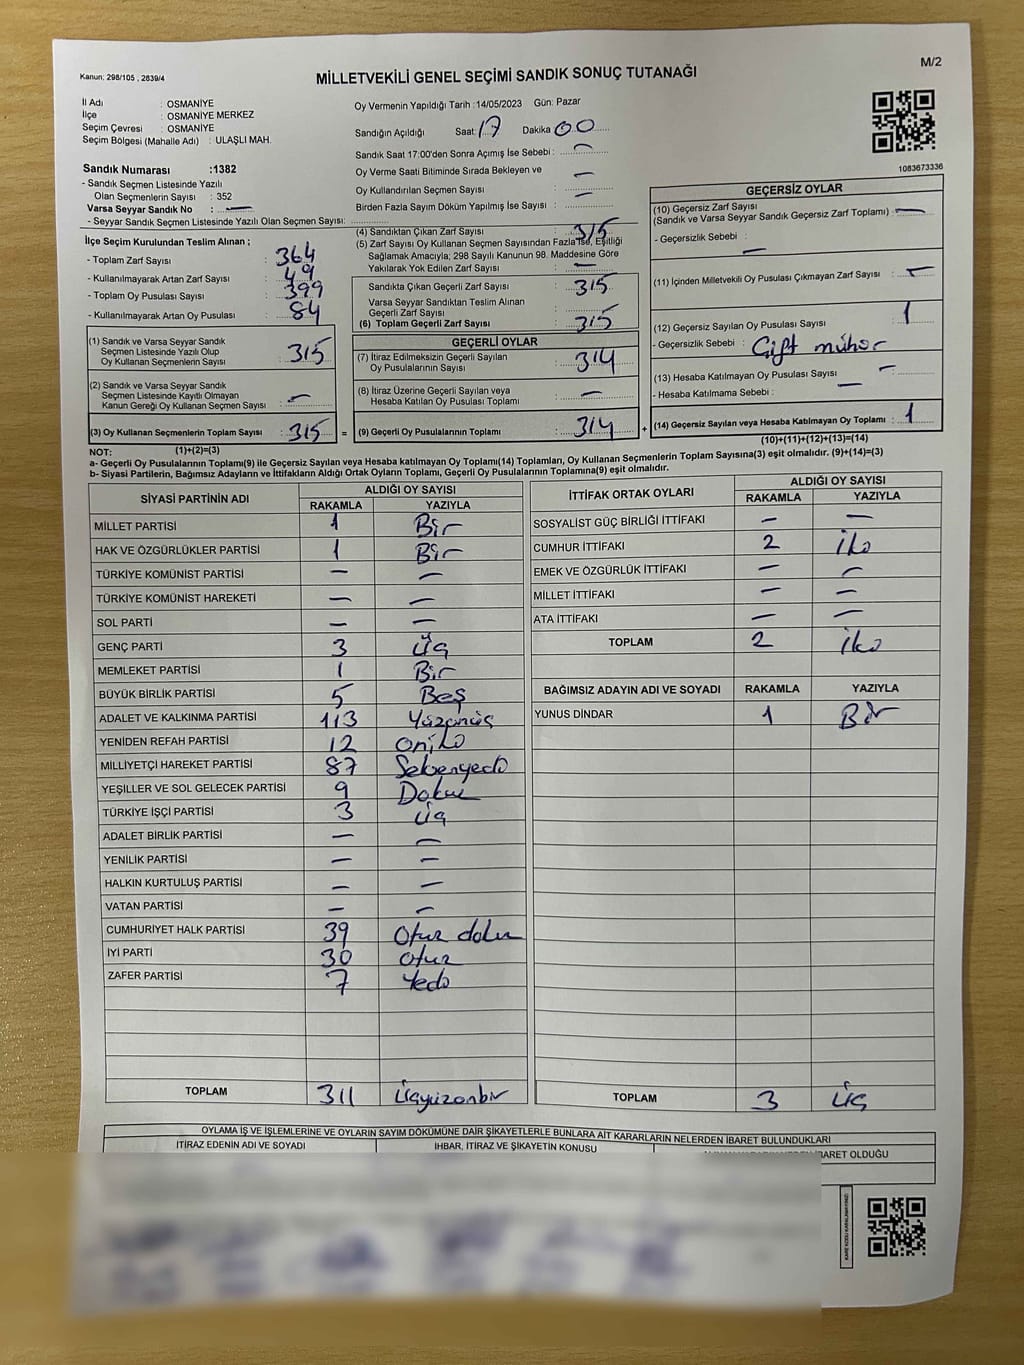 Kanun: 298/105 , 2839/4
MİLLETVEKİLİ GENEL SEÇİMİ SANDIK SONUÇ TUTANAĞI
M/2
İl Adı : OSMANİYE
İlçe : OSMANİYE MERKEZ
Seçim Çevresi : OSMANİYE
Seçim Bölgesi (Mahalle Adı) : ULAŞLI MAH.
Oy Vermenin Yapıldığı Tarih : 14/05/2023 Gün: Pazar
Sandığın Açıldığı Saat: 17 Dakika 00
Sandık Saat 17:00'den Sonra Açımış İse Sebebi : —
Oy Verme Saati Bitiminde Sırada Bekleyen ve
Oy Kullandırılan Seçmen Sayısı —
Birden Fazla Sayım Döküm Yapılmış İse Sayısı : —
1083673336
Sandık Numarası :1382
- Sandık Seçmen Listesinde Yazılı
Olan Seçmenlerin Sayısı : 352
Varsa Seyyar Sandık No : —
- Seyyar Sandık Seçmen Listesinde Yazılı Olan Seçmen Sayısı:
İlçe Seçim Kurulundan Teslim Alınan ;
- Toplam Zarf Sayısı : 364
- Kullanılmayarak Artan Zarf Sayısı : 49
- Toplam Oy Pusulası Sayısı : 399
- Kullanılmayarak Artan Oy Pusulası : 84
(1) Sandık ve Varsa Seyyar Sandık
Seçmen Listesinde Yazılı Olup
Oy Kullanan Seçmenlerin Sayısı : 315
(2) Sandık ve Varsa Seyyar Sandık
Seçmen Listesinde Kayıtlı Olmayan
Kanun Gereği Oy Kullanan Seçmen Sayısı : —
(3) Oy Kullanan Seçmenlerin Toplam Sayısı : 315 =
(4) Sandıktan Çıkan Zarf Sayısı : 315
(5) Zarf Sayısı Oy Kullanan Seçmen Sayısından Fazla İse, Eşitliği
Sağlamak Amacıyla; 298 Sayılı Kanunun 98. Maddesine Göre
Yakılarak Yok Edilen Zarf Sayısı : —
Sandıkta Çıkan Geçerli Zarf Sayısı : 315
Varsa Seyyar Sandıktan Teslim Alınan
Geçerli Zarf Sayısı :
(6) Toplam Geçerli Zarf Sayısı : 315
GEÇERLİ OYLAR
(7) İtiraz Edilmeksizin Geçerli Sayılan
Oy Pusulalarının Sayısı : 314
(8) İtiraz Üzerine Geçerli Sayılan veya
Hesaba Katılan Oy Pusulası Toplamı : —
(9) Geçerli Oy Pusulalarının Toplamı : 314 +
GEÇERSİZ OYLAR
(10) Geçersiz Zarf Sayısı
(Sandık ve Varsa Seyyar Sandık Geçersiz Zarf Toplamı) : —
- Geçersizlik Sebebi : —
(11) İçinden Milletvekili Oy Pusulası Çıkmayan Zarf Sayısı : —
(12) Geçersiz Sayılan Oy Pusulası Sayısı : 1
- Geçersizlik Sebebi : Çift mühür
(13) Hesaba Katılmayan Oy Pusulası Sayısı : —
- Hesaba Katılmama Sebebi : —
(14) Geçersiz Sayılan veya Hesaba Katılmayan Oy Toplamı : 1
NOT: (1)+(2)=(3) (10)+(11)+(12)+(13)=(14)
a- Geçerli Oy Pusulalarının Toplamı(9) ile Geçersiz Sayılan veya Hesaba katılmayan Oy Toplamı(14) Toplamları, Oy Kullanan Seçmenlerin Toplam Sayısına(3) eşit olmalıdır. (9)+(14)=(3)
b- Siyasi Partilerin, Bağımsız Adayların ve İttifakların Aldığı Ortak Oyların Toplamı, Geçerli Oy Pusulalarının Toplamına(9) eşit olmalıdır.
SİYASİ PARTİNİN ADI ALDIĞI OY SAYISI
RAKAMLA YAZIYLA
MİLLET PARTİSİ 1 Bir
HAK VE ÖZGÜRLÜKLER PARTİSİ 1 Bir
TÜRKİYE KOMÜNİST PARTİSİ — —
TÜRKİYE KOMÜNİST HAREKETİ — —
SOL PARTİ — —
GENÇ PARTİ 3 Üç
MEMLEKET PARTİSİ 1 Bir
BÜYÜK BİRLİK PARTİSİ 5 Beş
ADALET VE KALKINMA PARTİSİ 113 Yüzonüç
YENİDEN REFAH PARTİSİ 12 oniki
MİLLİYETÇİ HAREKET PARTİSİ 87 Seksenyedi
YEŞİLLER VE SOL GELECEK PARTİSİ 9 Dokuz
TÜRKİYE İŞÇİ PARTİSİ 3 üç
ADALET BİRLİK PARTİSİ — —
YENİLİK PARTİSİ — —
HALKIN KURTULUŞ PARTİSİ — —
VATAN PARTİSİ — —
CUMHURİYET HALK PARTİSİ 39 Otuz dokuz
İYİ PARTİ 30 otuz
ZAFER PARTİSİ 7 Yedi
TOPLAM 311 Üçyüzonbir
İTTİFAK ORTAK OYLARI ALDIĞI OY SAYISI
RAKAMLA YAZIYLA
SOSYALİST GÜÇ BİRLİĞİ İTTİFAKI — —
CUMHUR İTTİFAKI 2 İki
EMEK VE ÖZGÜRLÜK İTTİFAKI — —
MİLLET İTTİFAKI — —
ATA İTTİFAKI — —
TOPLAM 2 İki
BAĞIMSIZ ADAYIN ADI VE SOYADI RAKAMLA YAZIYLA
YUNUS DİNDAR 1 Bir
TOPLAM 3 üç
OYLAMA İŞ VE İŞLEMLERİNE VE OYLARIN SAYIM DÖKÜMÜNE DAİR ŞİKAYETLERLE BUNLARA AİT KARARLARIN NELERDEN İBARET BULUNDUKLARI
İTİRAZ EDENİN ADI VE SOYADI İHBAR, İTİRAZ VE ŞİKAYETİN KONUSU İBARET OLDUĞU